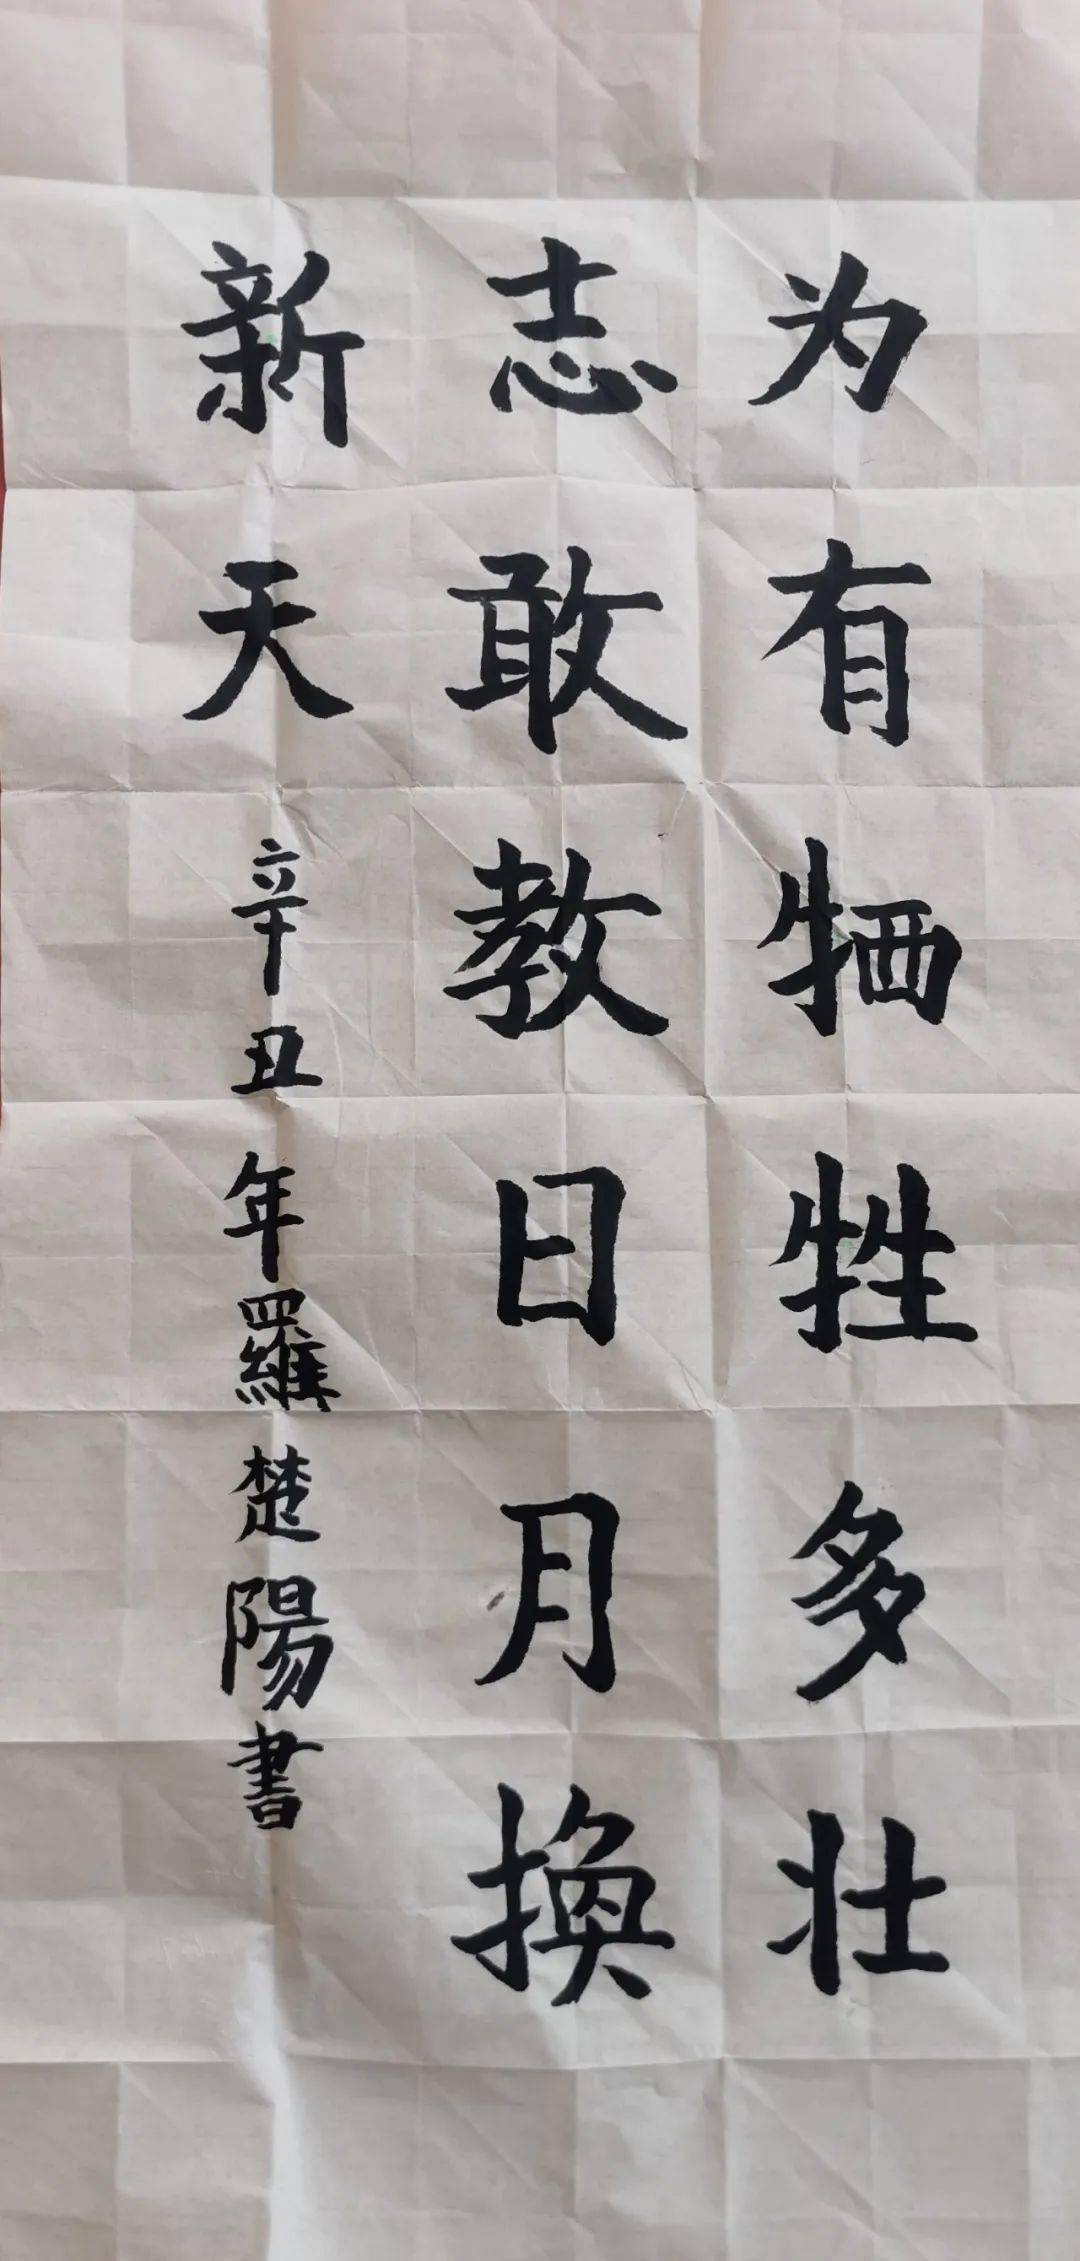 为有牺牲多壮
志敢教日月换
新天
辛丑年羅楚陽書